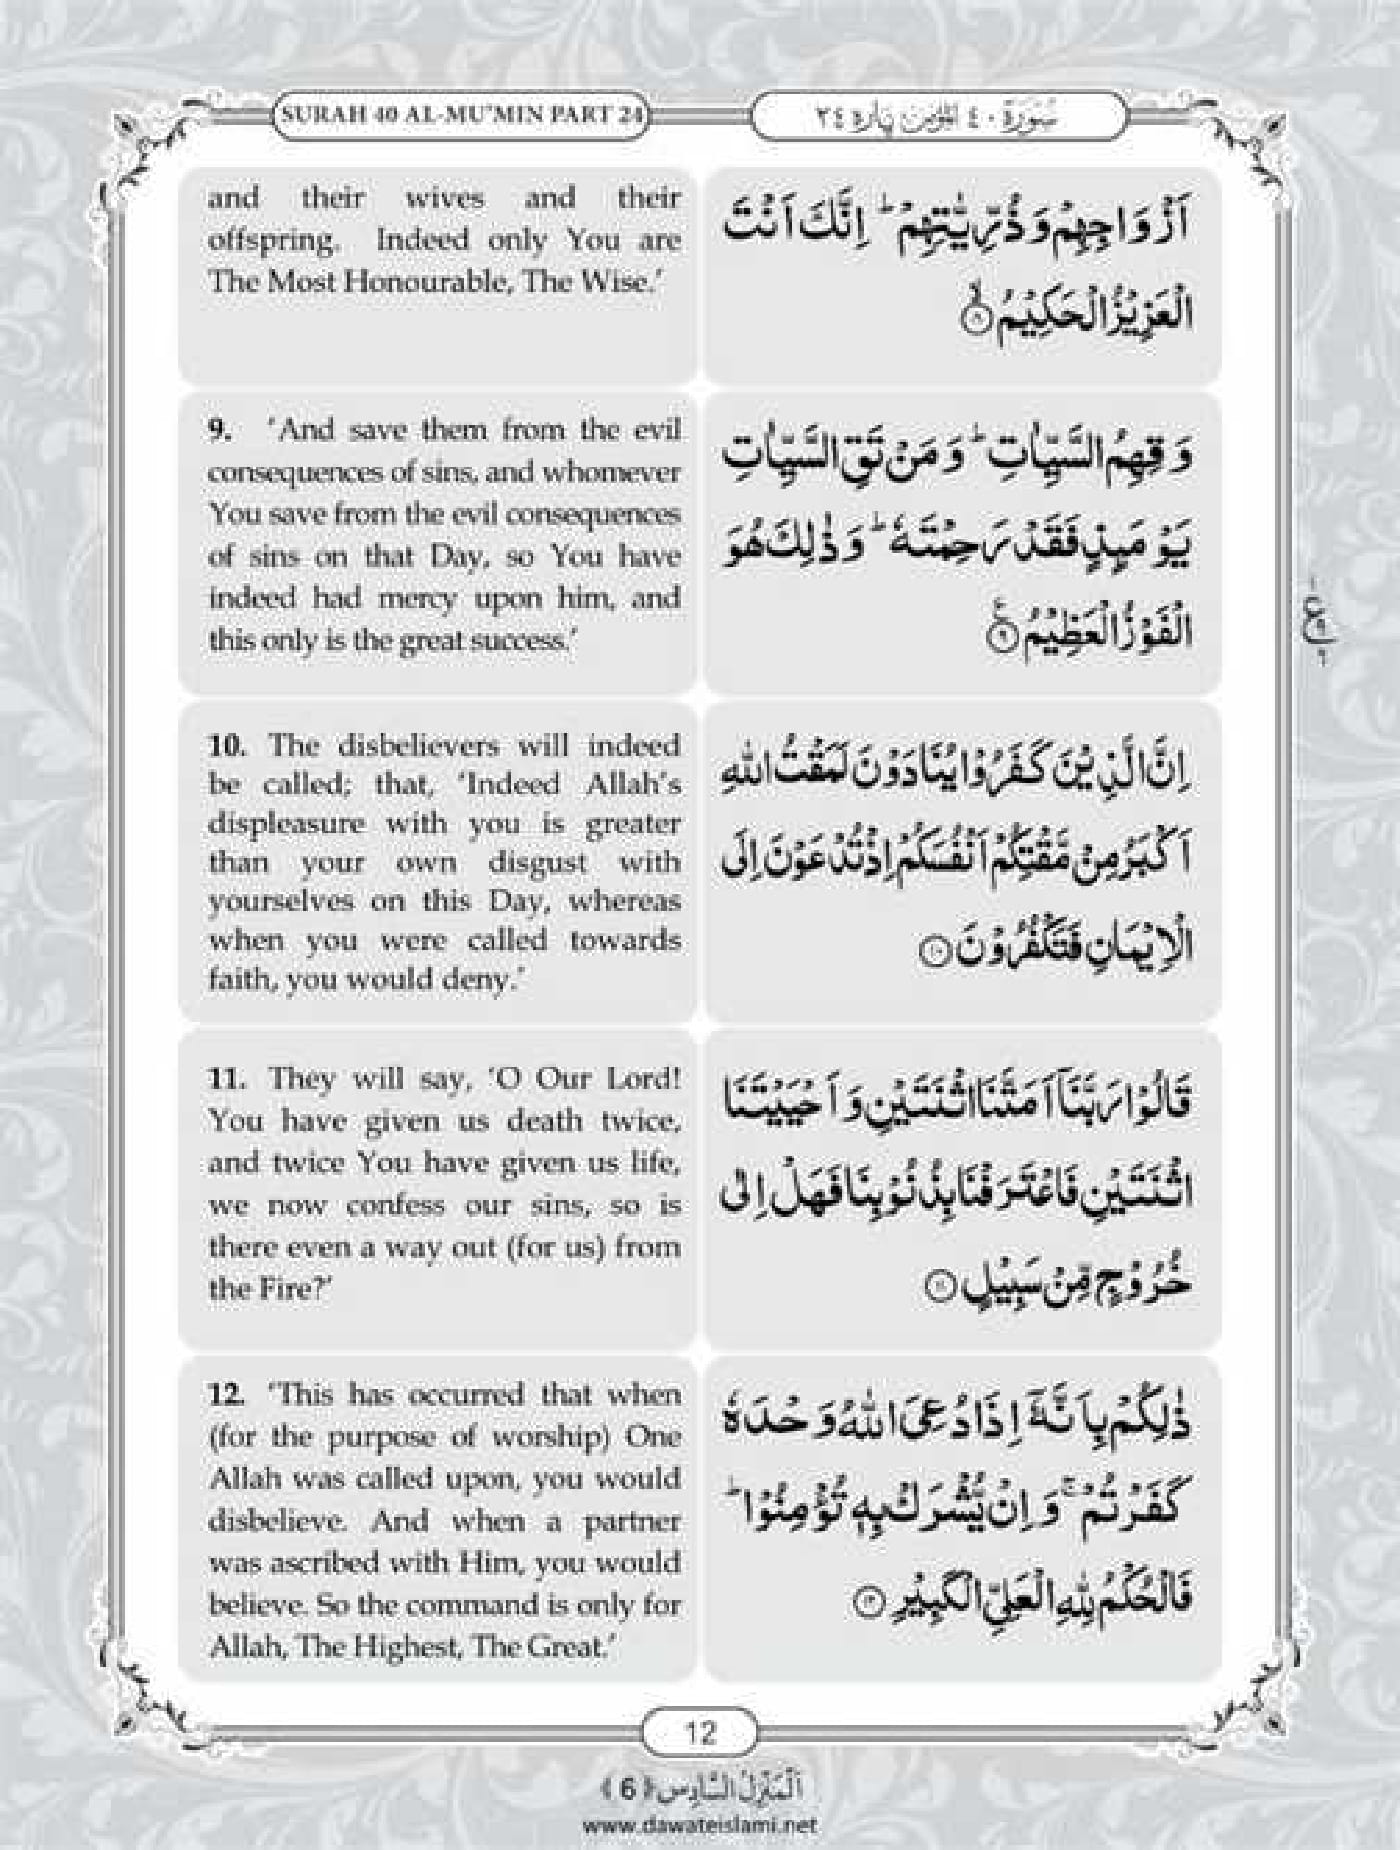 SURAH 40 AL-MU'MIN PART 24
سُوْرَةُ ٤٠ الْمُؤْمِن پاره ٢٤
and their wives and their
offspring. Indeed only You are
The Most Honourable, The Wise.'
اَزْوَاجِهِمْ وَذُرِّيّٰتِهِمْ ؕ اِنَّكَ اَنْتَ
الْعَزِيْزُ الْحَكِيْمُ ۙ﴿۸﴾
9. 'And save them from the evil
consequences of sins, and whomever
You save from the evil consequences
of sins on that Day, so You have
indeed had mercy upon him, and
this only is the great success.'
وَقِهِمُ السَّيِّاٰتِ ؕ وَمَنْ تَقِ السَّيِّاٰتِ
يَوْمَىِٕذٍ فَقَدْ رَحِمْتَهٗ ؕ وَذٰلِكَ هُوَ
الْفَوْزُ الْعَظِيْمُ ﴿۹﴾
ع
10. The disbelievers will indeed
be called; that, 'Indeed Allah's
displeasure with you is greater
than your own disgust with
yourselves on this Day, whereas
when you were called towards
faith, you would deny.'
اِنَّ الَّذِيْنَ كَفَرُوْا يُنَادَوْنَ لَمَقْتُ اللّٰهِ
اَكْبَرُ مِنْ مَّقْتِكُمْ اَنْفُسَكُمْ اِذْ تُدْعَوْنَ اِلَى
الْاِيْمَانِ فَتَكْفُرُوْنَ ﴿۱۰﴾
11. They will say, 'O Our Lord!
You have given us death twice,
and twice You have given us life,
we now confess our sins, so is
there even a way out (for us) from
the Fire?'
قَالُوْا رَبَّنَاۤ اَمَتَّنَا اثْنَتَيْنِ وَاَحْيَيْتَنَا
اثْنَتَيْنِ فَاعْتَرَفْنَا بِذُنُوْبِنَا فَهَلْ اِلٰى
خُرُوْجٍ مِّنْ سَبِيْلٍ ﴿۱۱﴾
12. 'This has occurred that when
(for the purpose of worship) One
Allah was called upon, you would
disbelieve. And when a partner
was ascribed with Him, you would
believe. So the command is only for
Allah, The Highest, The Great.'
ذٰلِكُمْ بِاَنَّهٗۤ اِذَا دُعِیَ اللّٰهُ وَحْدَهٗ
كَفَرْتُمْ ۚ وَاِنْ يُّشْرَكْ بِهٖ تُؤْمِنُوْا ؕ
فَالْحُكْمُ لِلّٰهِ الْعَلِيِّ الْكَبِيْرِ ﴿۱۲﴾
12
اَلْمَنْزِلُ السَّادِس ﴿6﴾
www.dawateislami.net